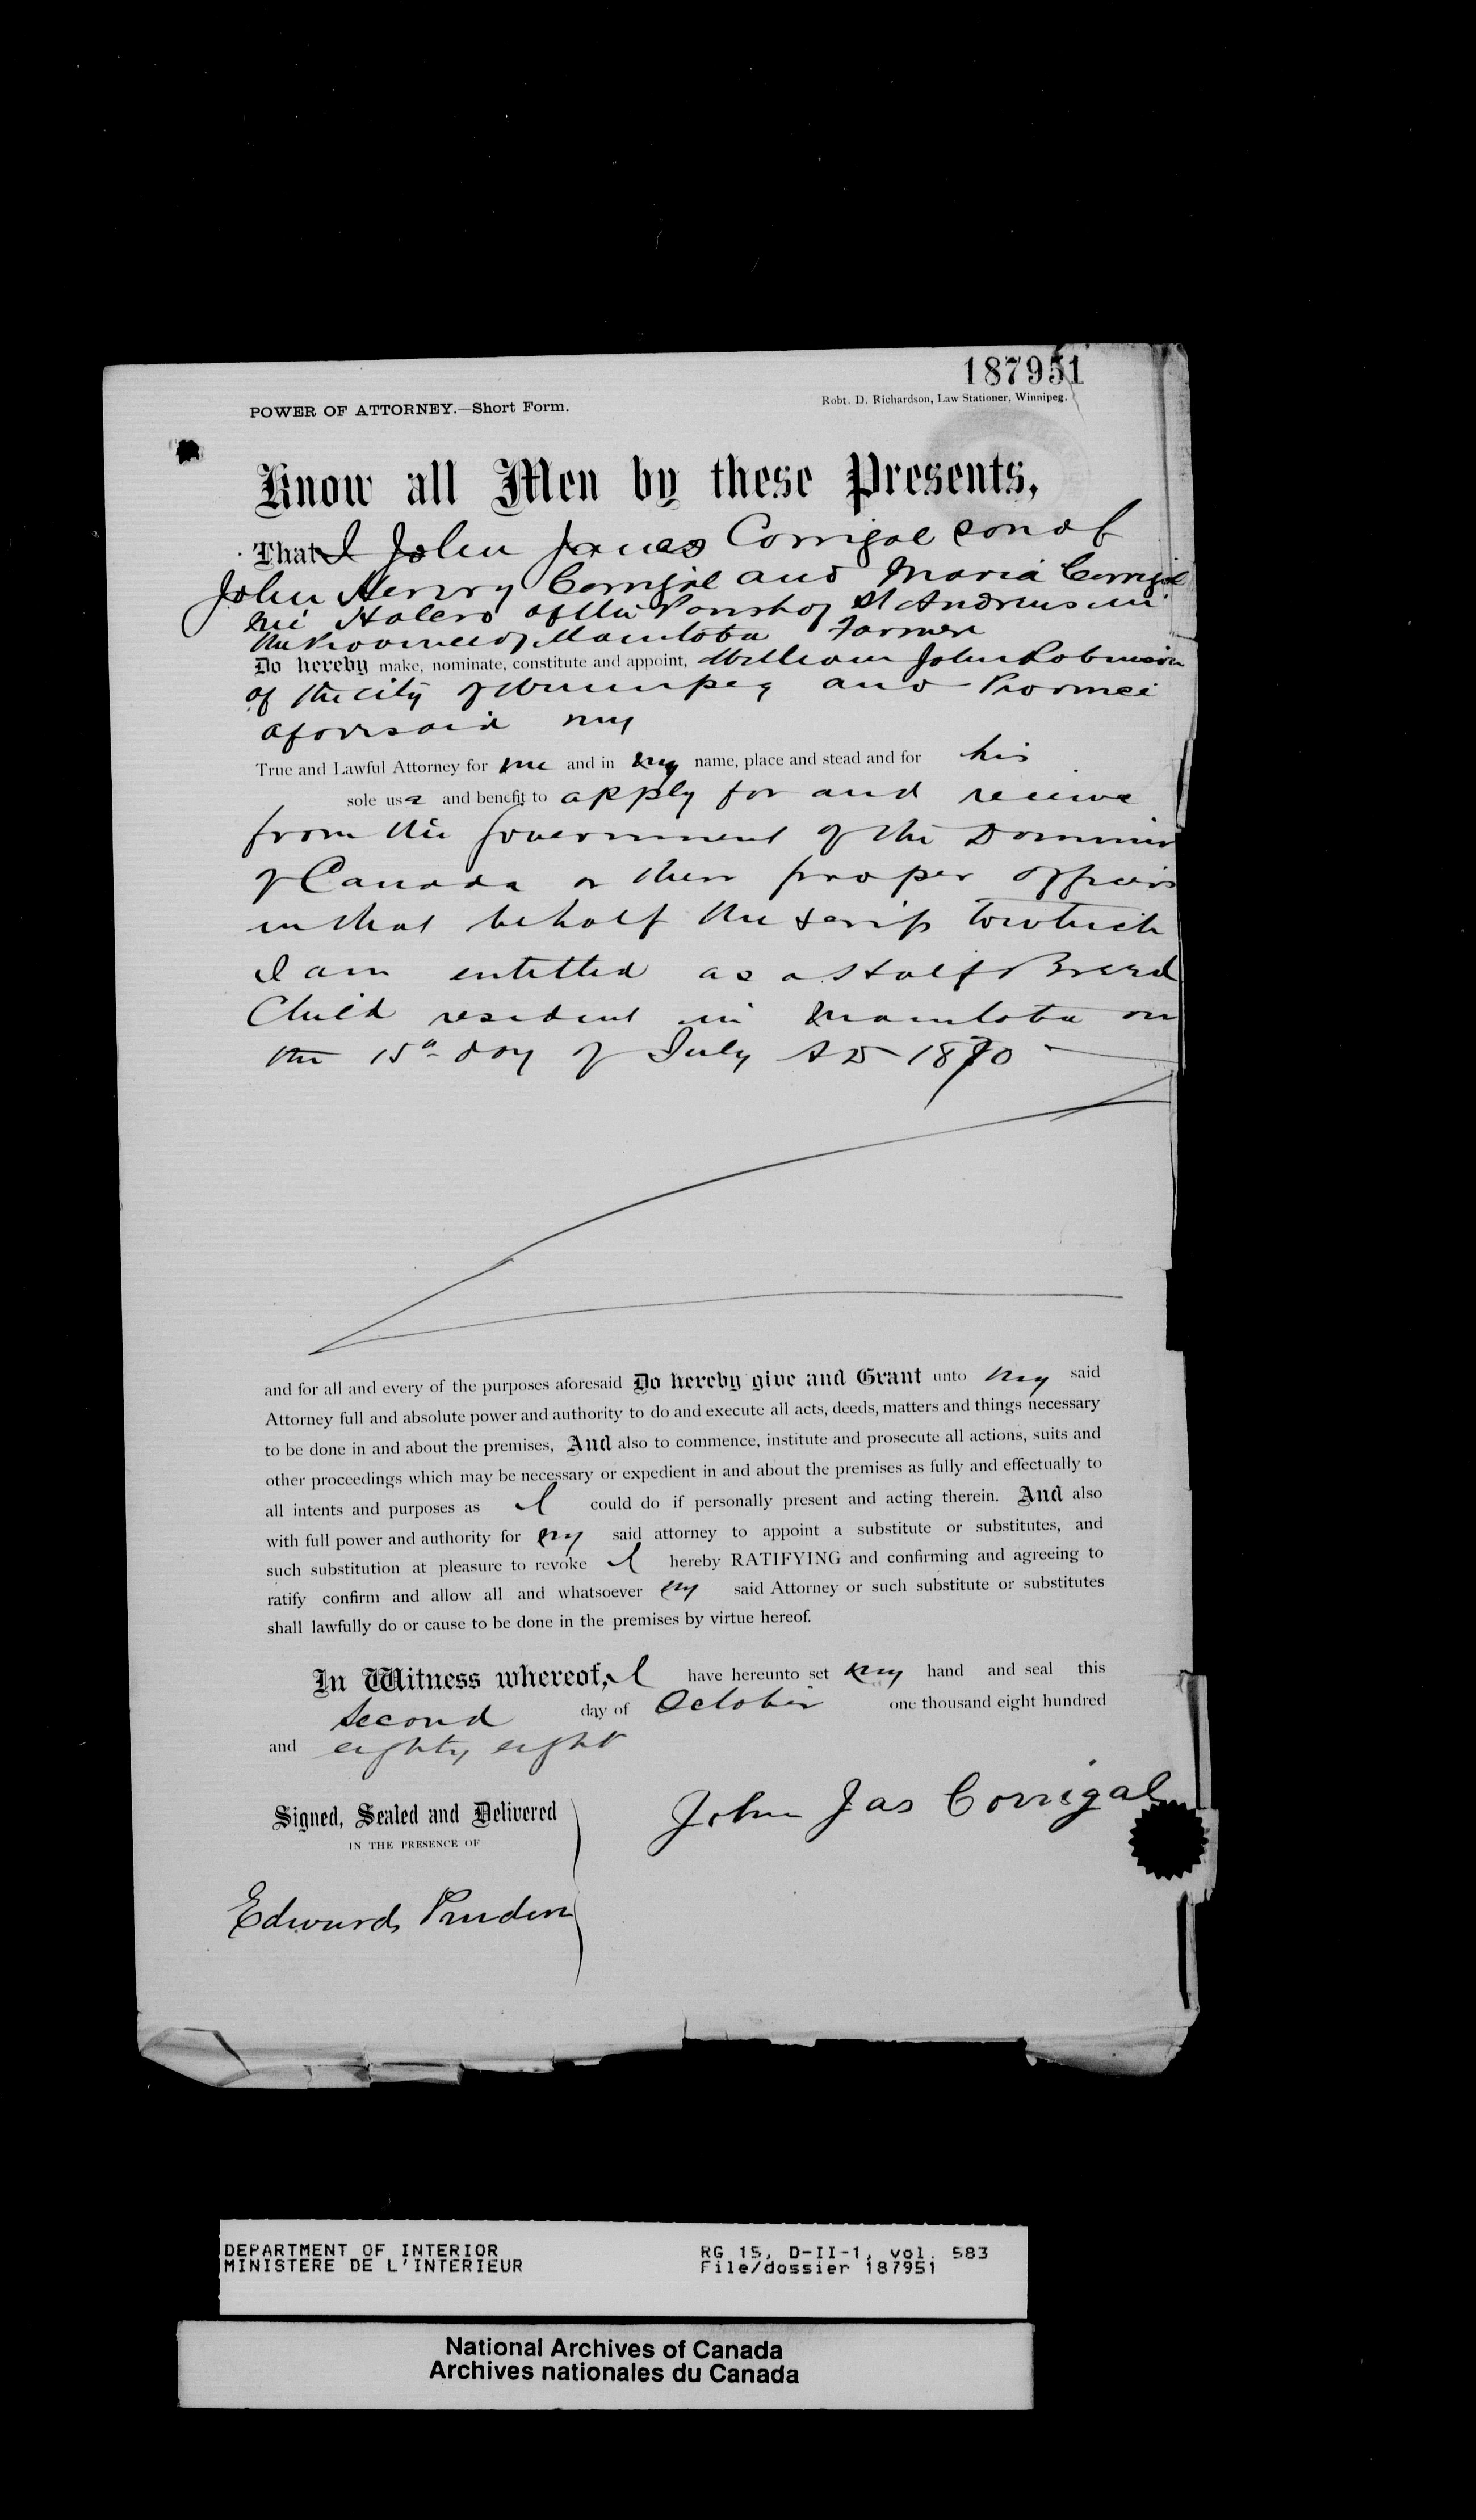 187951
POWER OF ATTORNEY.—Short Form.
Robt. D. Richardson, Law Stationer, Winnipeg.
Know all Men by these Presents,
That I John James Corrigal son of
John Henry Corrigal and Maria Corrigal
neé of the Parish of St Andrews in
the Province of Manitoba Farmer
Do hereby make, nominate, constitute and appoint, William John Robinson
of the city of Winnipeg and Province
aforesaid my
True and Lawful Attorney for me and in my name, place and stead and for his
sole use and benefit to apply for and receive
from the Government of the Dominion
of Canada or their proper officers
in that behalf the scrip to which
I am entitled as a Half Breed
Child resident in Manitoba on
the 15th day of July AD 1870
and for all and every of the purposes aforesaid Do hereby give and Grant unto my said
Attorney full and absolute power and authority to do and execute all acts, deeds, matters and things necessary
to be done in and about the premises, And also to commence, institute and prosecute all actions, suits and
other proceedings which may be necessary or expedient in and about the premises as fully and effectually to
all intents and purposes as I could do if personally present and acting therein. And also
with full power and authority for my said attorney to appoint a substitute or substitutes, and
such substitution at pleasure to revoke I hereby RATIFYING and confirming and agreeing to
ratify confirm and allow all and whatsoever my said Attorney or such substitute or substitutes
shall lawfully do or cause to be done in the premises by virtue hereof.
In Witness whereof, I have hereunto set my hand and seal this
second day of October one thousand eight hundred
and eighty eight
Signed, Sealed and Delivered
IN THE PRESENCE OF
John Jas Corrigal
Edward Pruden
DEPARTMENT OF INTERIOR RG 15, D-II-1, vol. 583
MINISTERE DE L'INTERIEUR File/dossier 187951
National Archives of Canada
Archives nationales du Canada